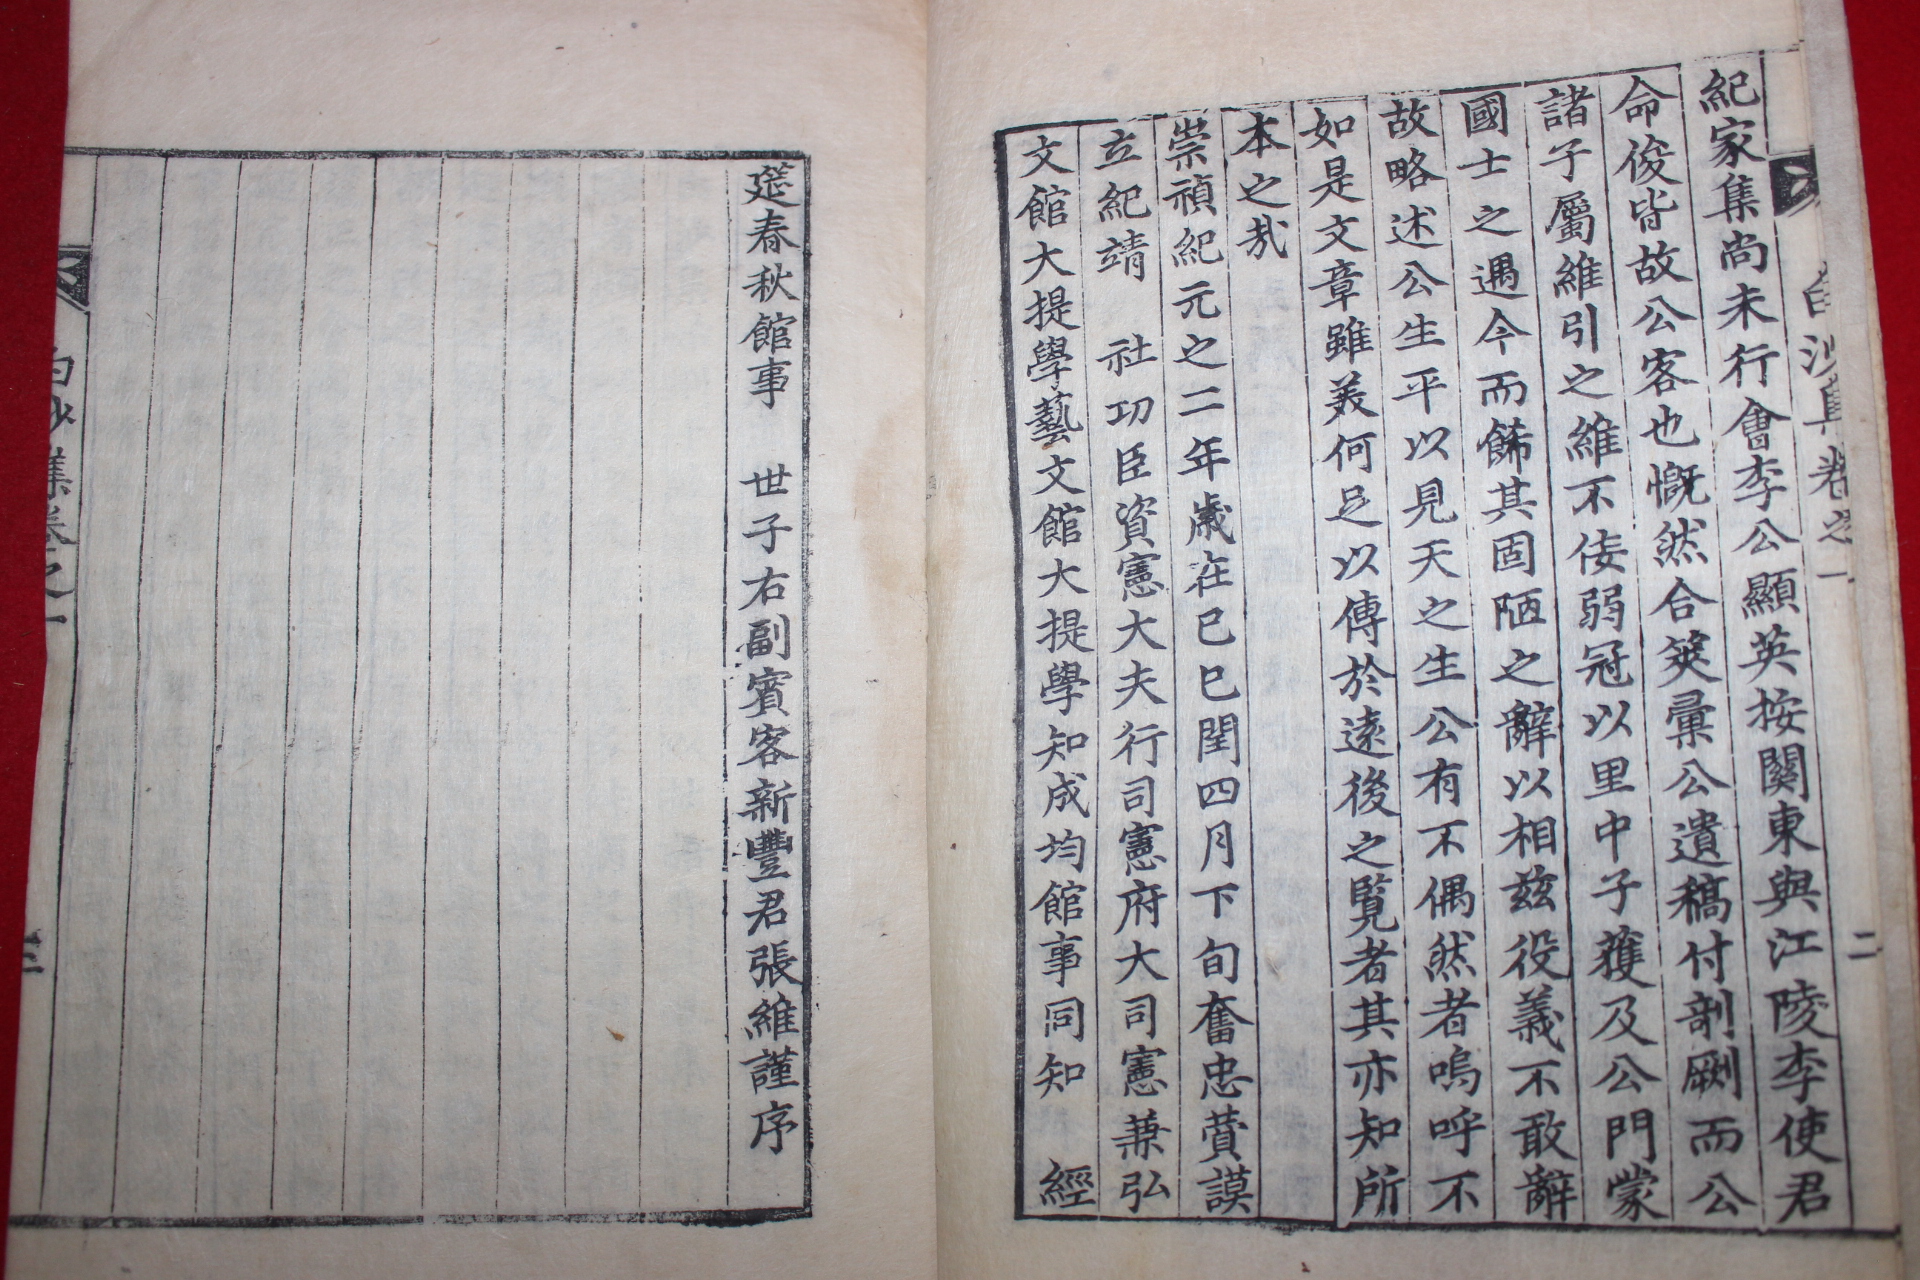 白沙集卷之一
二
紀家集尚未行會李公顯英按關東與江陵李使君
命俊皆故公客也慨然合筴彙公遺稿付剞劂而公
諸子屬維引之維不佞弱冠以里中子獲及公門蒙
國士之遇今而餙其固陋之辭以相茲役義不敢辭
故略述公生平以見天之生公有不偶然者嗚呼不
如是文章雖美何足以傳於遠後之覽者其亦知所
本之㢤
崇禎紀元之二年歲在己巳閏四月下旬奮忠賛謨
立紀靖 社功臣資憲大夫行司憲府大司憲兼弘
文館大提學藝文館大提學知成均館事同知 經
筵春秋館事 世子右副賓客新豐君張維謹序
白沙集卷之一
三